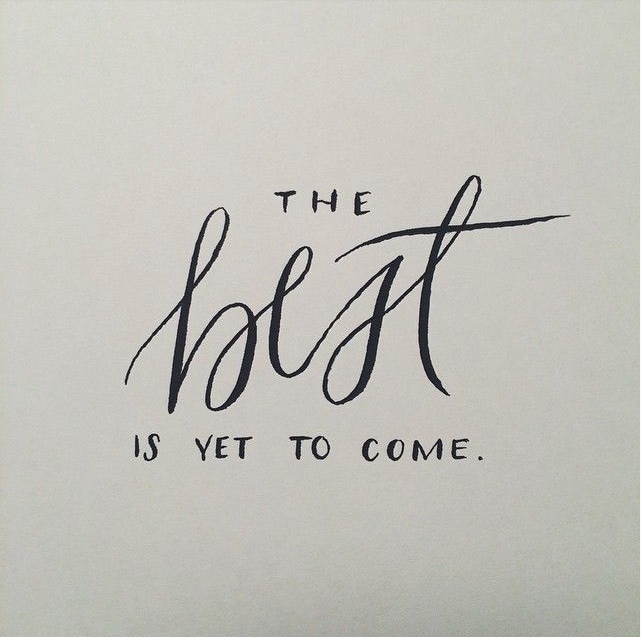 THE
best
IS YET TO COME.